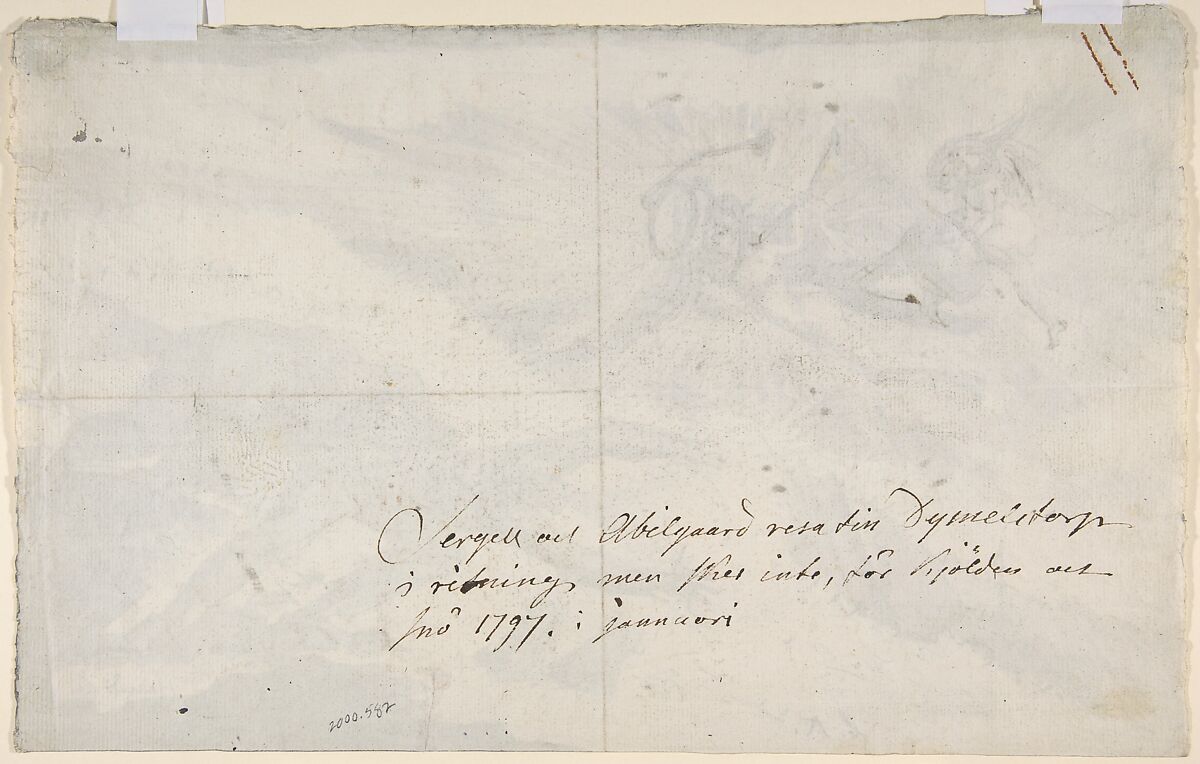 Sergell och Abilgaard resa till Dymelstorp
i ritning men sker inte, för kjölden och
snö 1797. i jannuari
2000.582